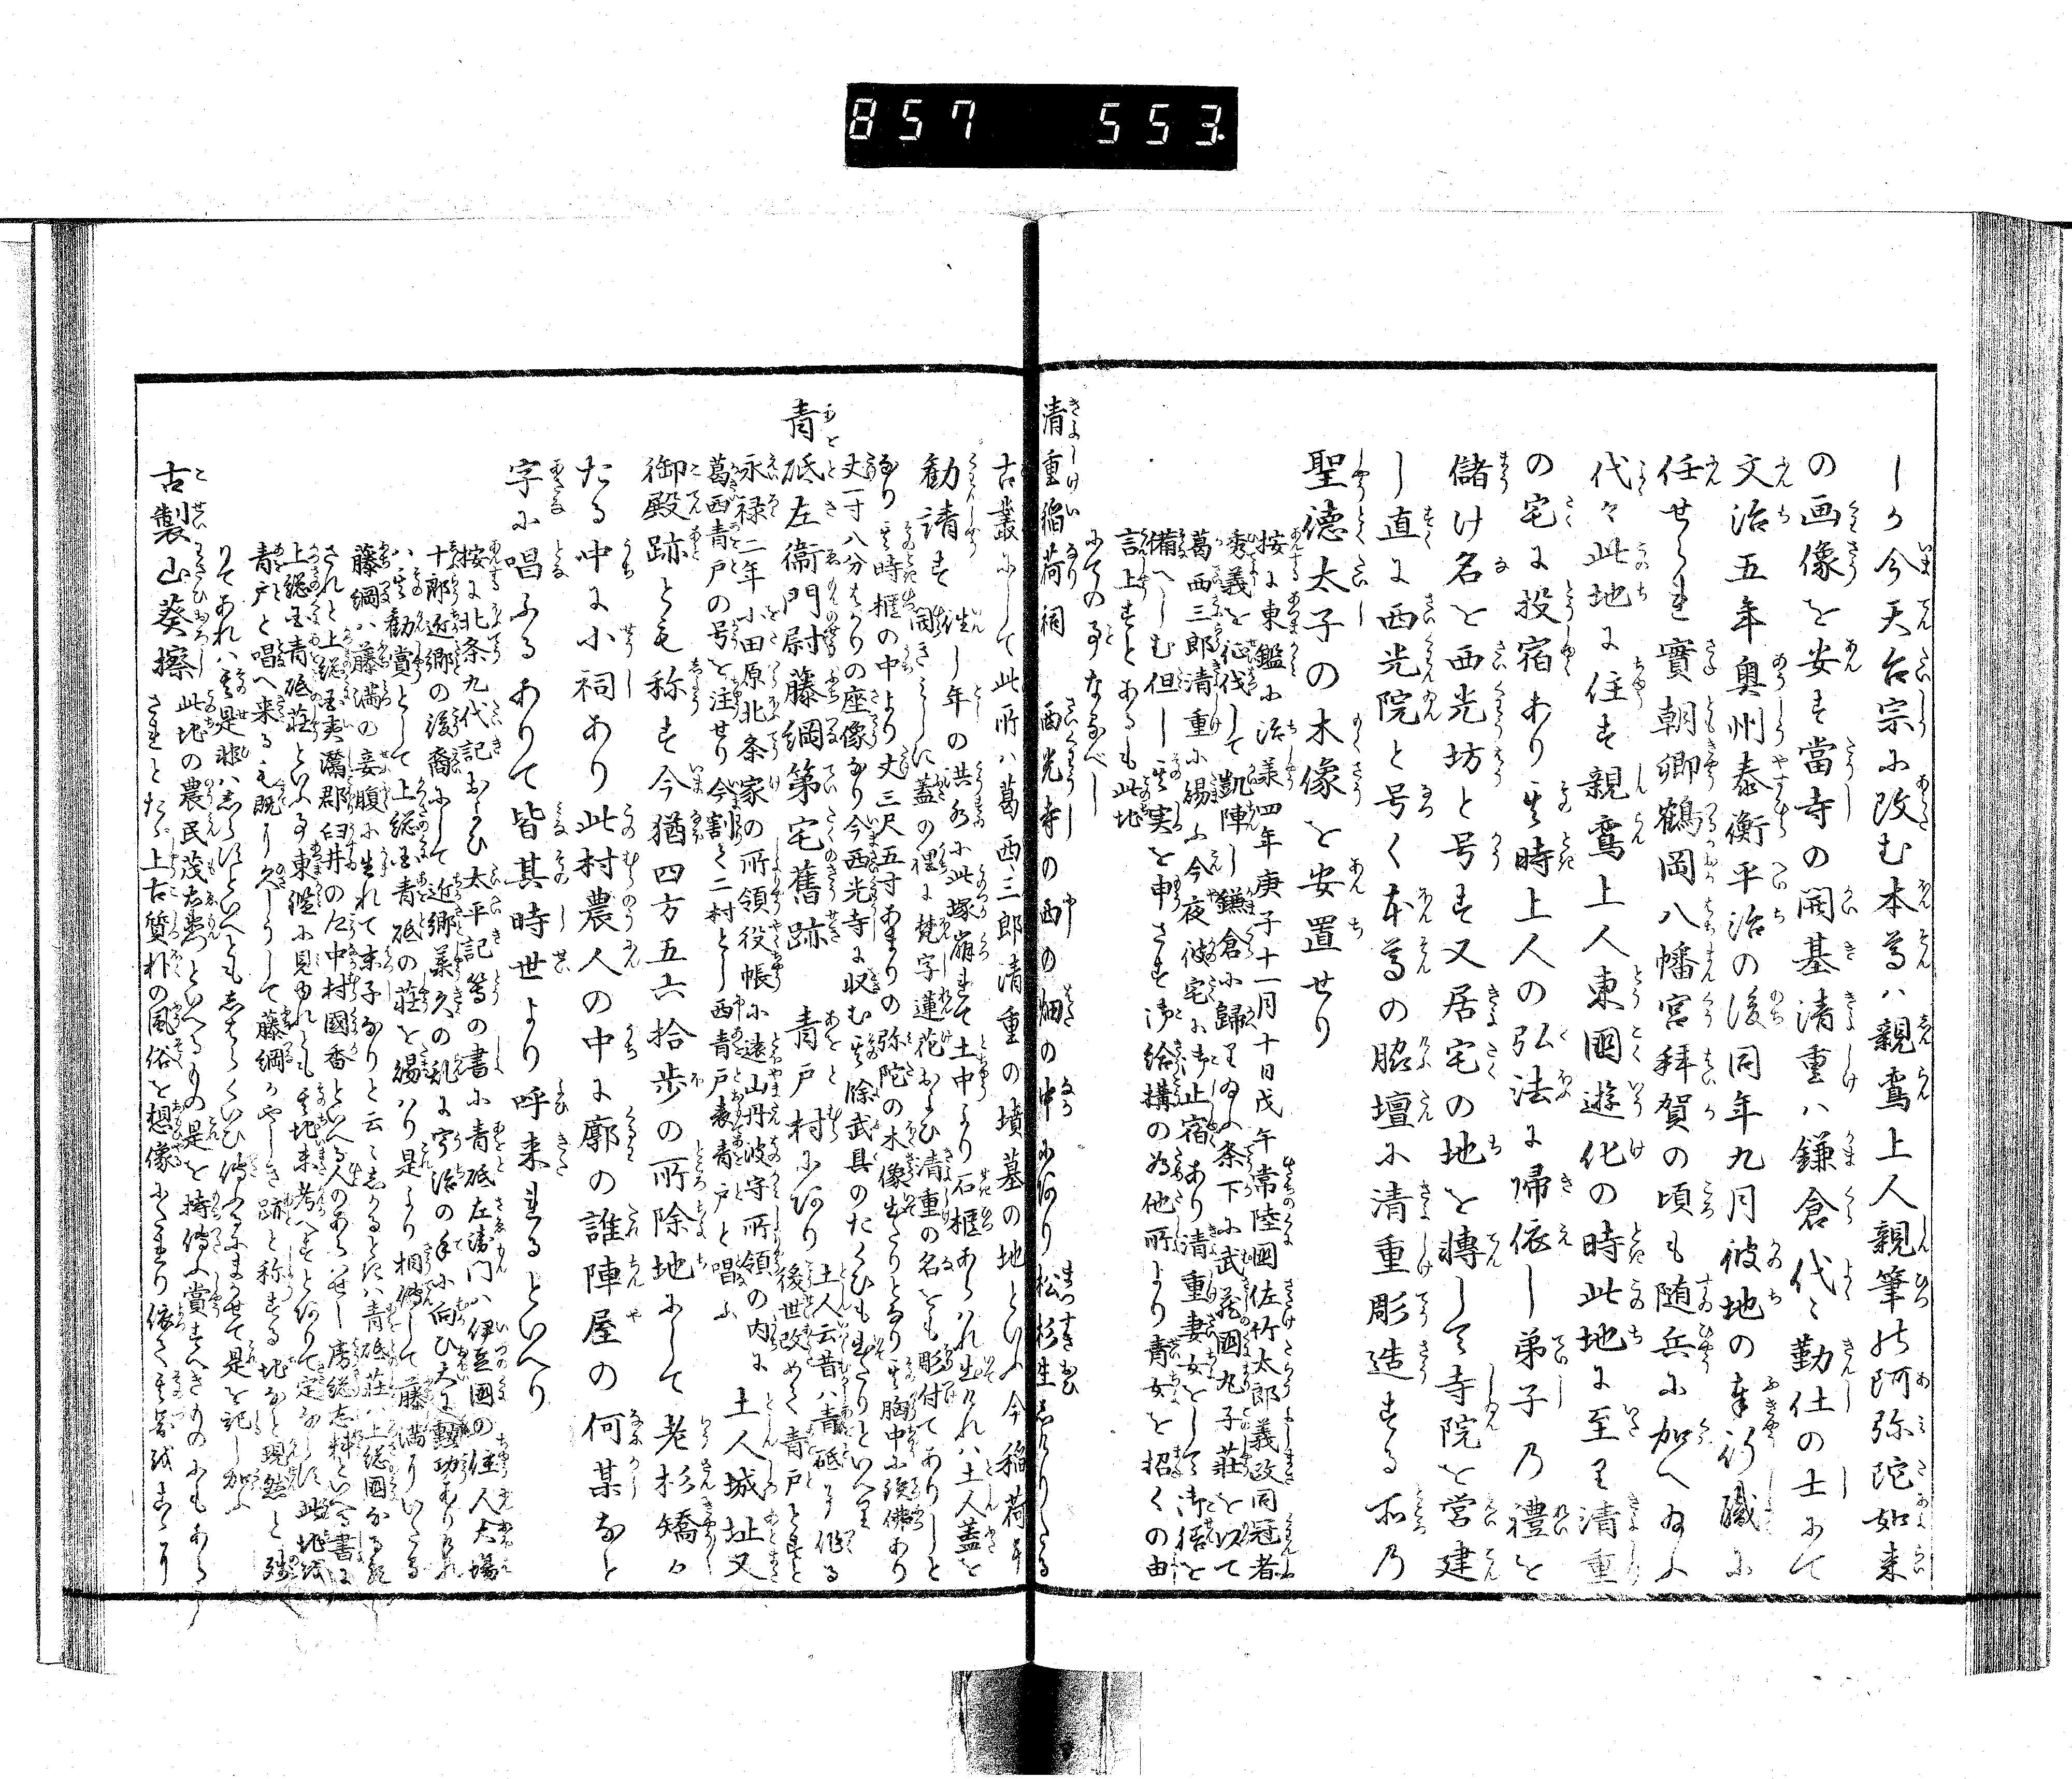 857 553
しか今天台宗に改む本尊ハ親鸞上人親筆の阿弥陀如来
の画像を安す當寺の開基清重ハ鎌倉代々勤仕の士にて
文治五年奥州泰衡平治の後同年九月彼地の奉行職に
任せられ實朝卿鶴岡八幡宮拜賀の頃も随兵に加へ給ふ
代々此地に住す親鸞上人東國遊化の時此地に至り清重
の宅に投宿あり其時上人の弘法に帰依し弟子の禮を
儲け名を西光坊と号す又居宅の地を轉して寺院を営建
し直に西光院と号く本尊の脇壇に清重彫造する所の
聖徳太子の木像を安置せり
按に東鑑に治承四年庚子十一月十日戊午常陸國佐竹太郎義政同冠者
秀義を征伐して凱陣し鎌倉に歸り給ふ条下に武蔵國丸子莊を以て
葛西三郎清重に賜ふ今夜彼宅に御止宿あり清重妻女をして御膳を
備へしむ但し其実を申さす御結構の為他所より青女を招くの由
言上すとあるも此地
にての事なるべし
清重稲荷祠 西光寺の西の畑の中にあり松杉生しけりたる
古叢にして此所ハ葛西三郎清重の墳墓の地といふ今稲荷を
勧請す往し年の洪水に此塚崩れて土中より石櫃あらハれ出けれハ土人蓋を
開きみしに蓋の裡に梵字蓮花および清重の名をも彫付てありしと
なり其時櫃の中より丈三尺五寸あまりの弥陀の木像出たりとなり其胸中に鋳佛あり
丈一寸八分はかりの座像なり今西光寺に収む其餘武具のたくひも出たりといへり
青砥左衛門尉藤綱第宅舊跡 青戸村にあり 土人云昔ハ青砥に作る
後世改めて青戸とすと
永禄二年小田原北条家の所領役帳に遠山丹波守所領の内に
葛西青戸の号を注せり今割て二村とし西青戸表青戸と唱ふ 土人城址又
御殿跡とも称す今猶四方五六拾歩の所除地にして老杉矯々
たる中に小祠あり此村農人の中に廓の誰陣屋の何某なと
字に唱ふるありて皆其時世より呼来れるといへり
按に北条九代記および太平記等の書に青砥左衛門ハ伊豆國の住人大場
十郎近郷の後裔にして近郷承久の乱に宇治の手に向ひ大に勲功ありけれ
ハ其勧賞として上総国青砥の莊を賜ハり是より相傳して藤満にいたる
藤綱ハ藤満の妾腹に生れて末子なりと云云しかるときハ青砥莊ハ上総國なる歟
されと上総国夷灊郡臼井の庄中村國香といへる人のあらハせし房総志料といへる書に
上総国青砥莊といふ事東鑑に見ゆれとも其地未考へすとありて定かならす此地は
青戸と唱へ来る事既に久しうして藤綱かやしき跡と称する地なと現然と残
りてあれハ其是非ハしらすといへとも志はらくいひ傳ふるにまかせて是を記し加ふ
古製山葵擦 此地の農民茂右衛門といへるもの是を持傳ふ賞すへきものにもあら
されとたゝ上古質朴の風俗を想像にたれり依て其図を載するのみ